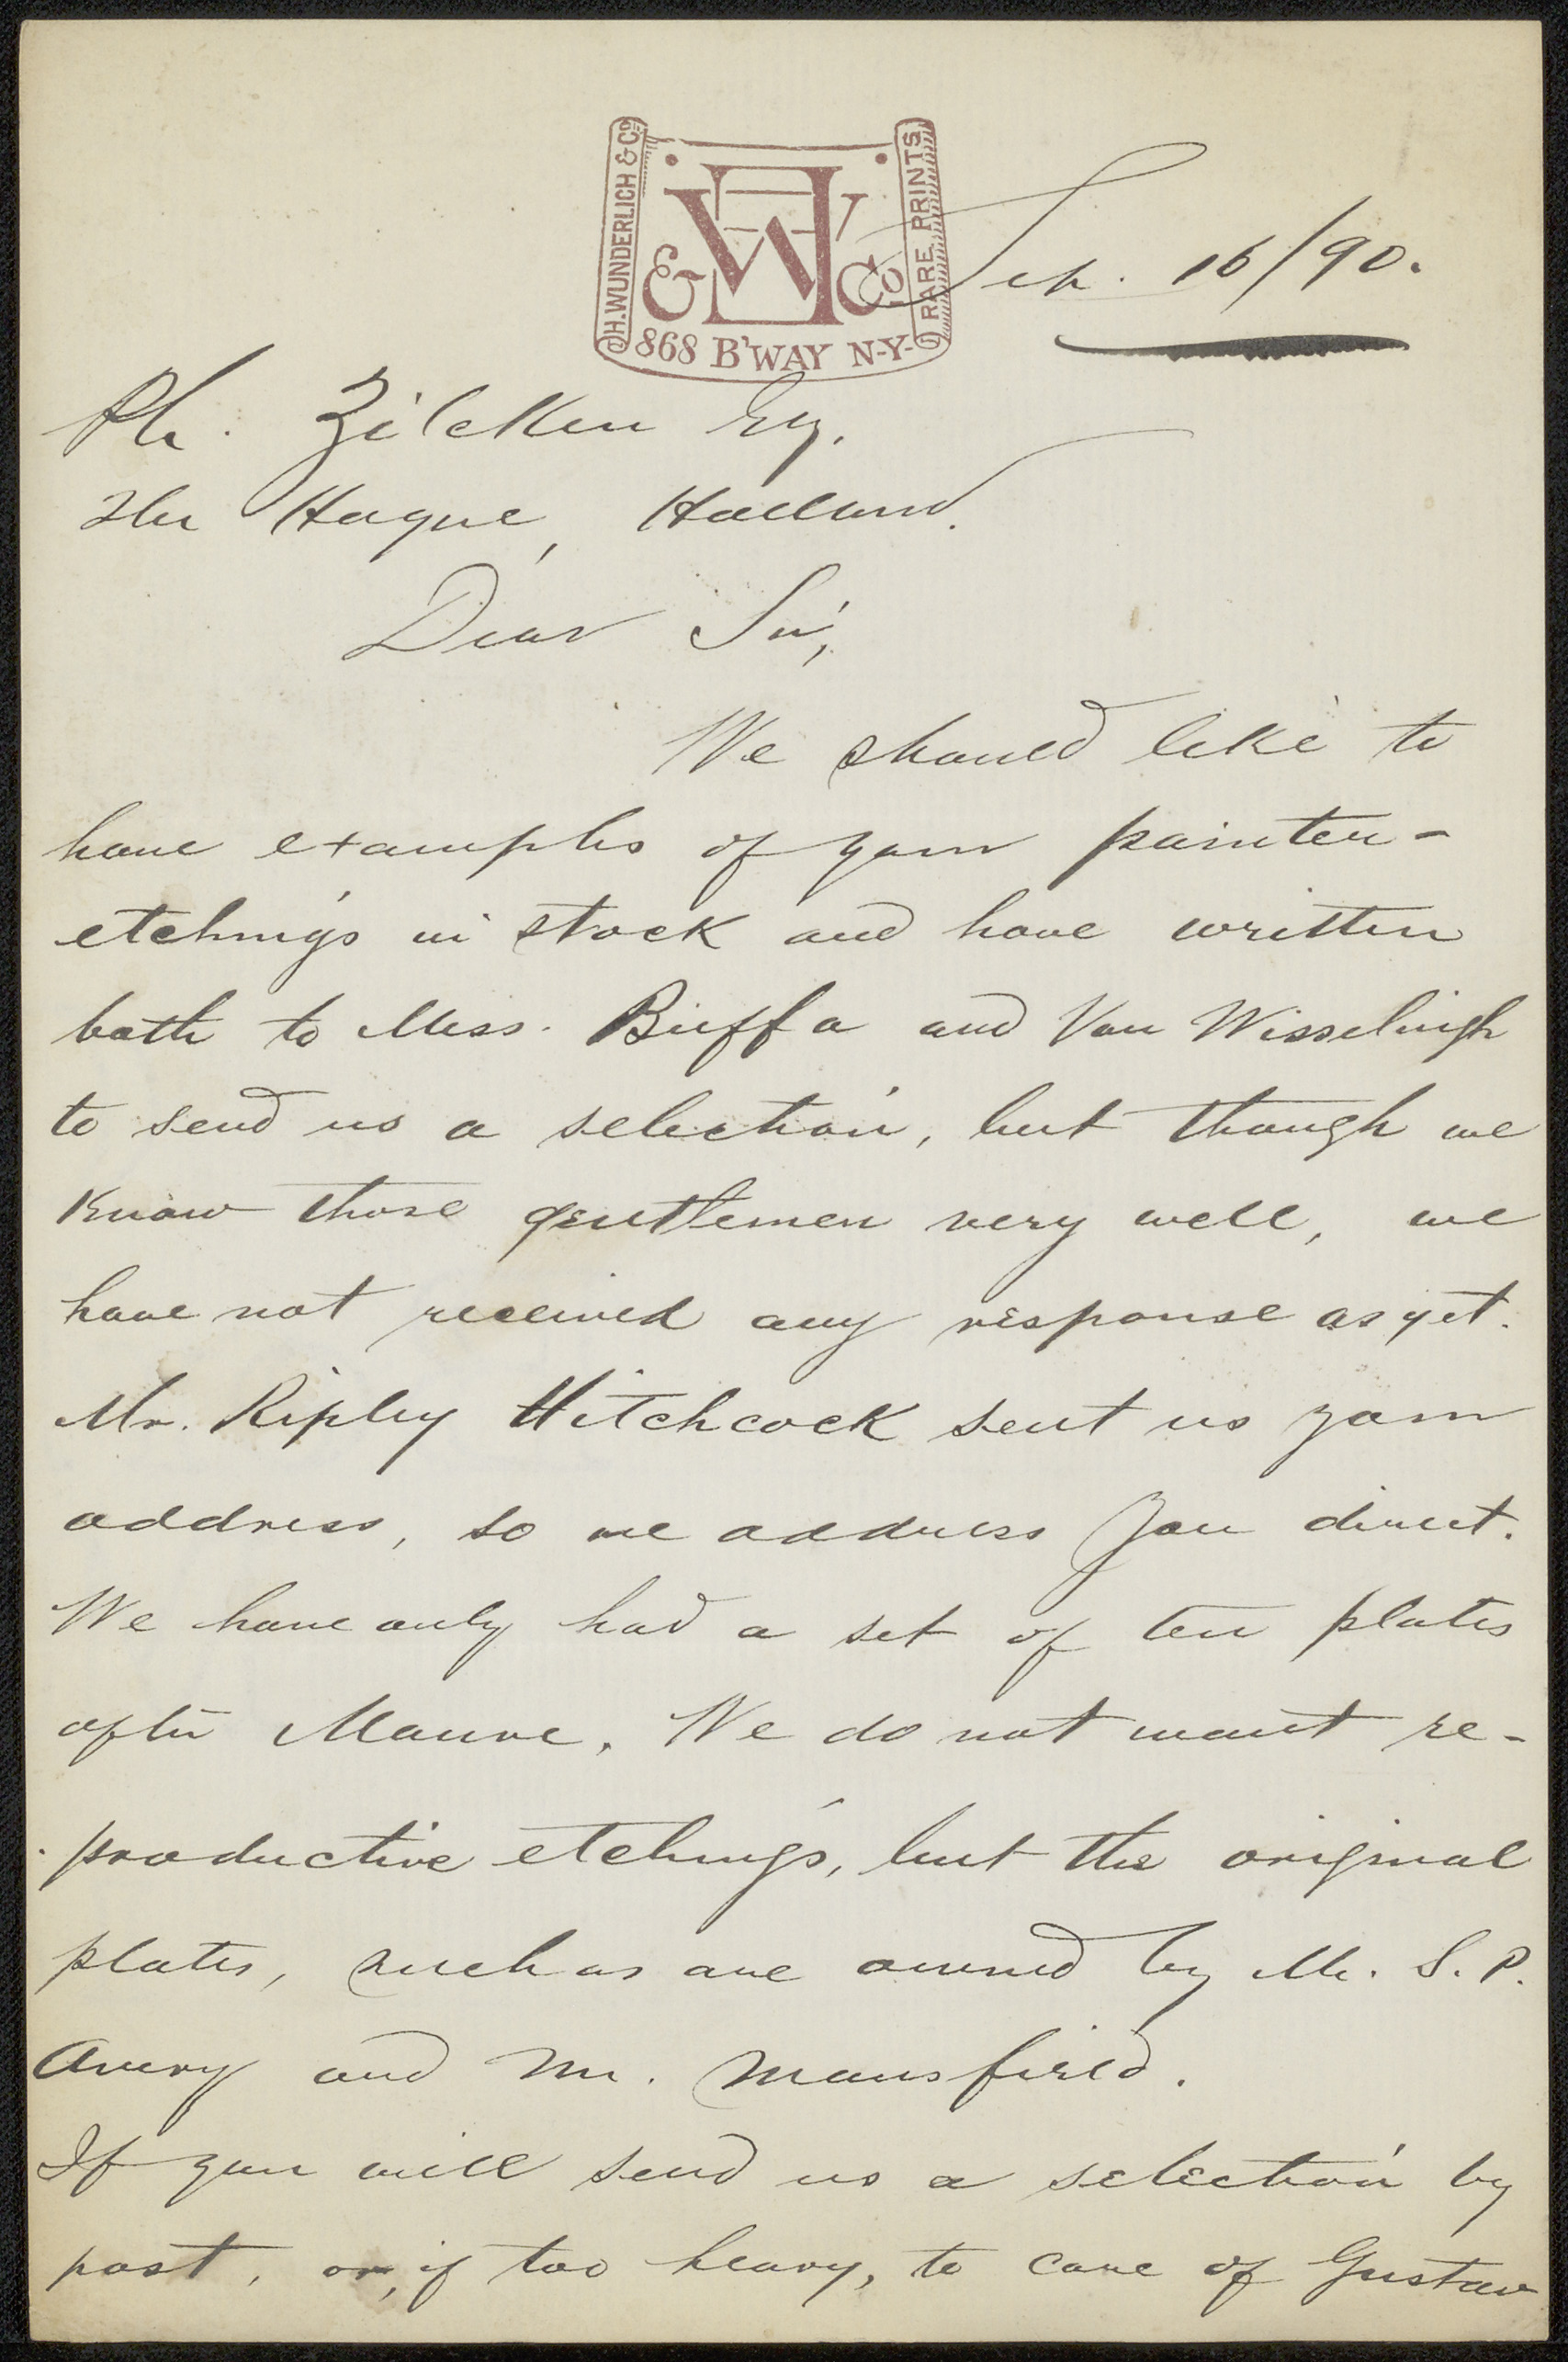 H. WUNDERLICH & Co
RARE PRINTS
HW
& Co
868 B'WAY N-Y-
Sep. 16/90.
Ph. Zilcken Esq.
The Hague, Holland.
Dear Sir,
We should like to
have examples of your painter-
etchings in stock and have written
both to Mess. Buffa and Van Wisselingh
to send us a selection, but though we
know those gentlemen very well, we
have not received any response as yet.
Mr. Ripley Hitchcock sent us your
address, so we address you direct.
We have only had a set of ten plates
after Mauve. We do not want re-
productive etchings, but the original
plates, such as are owned by Mr. S. P.
Avery and Mr. Mansfield.
If you will send us a selection by
post, or, if too heavy, to care of Gustav